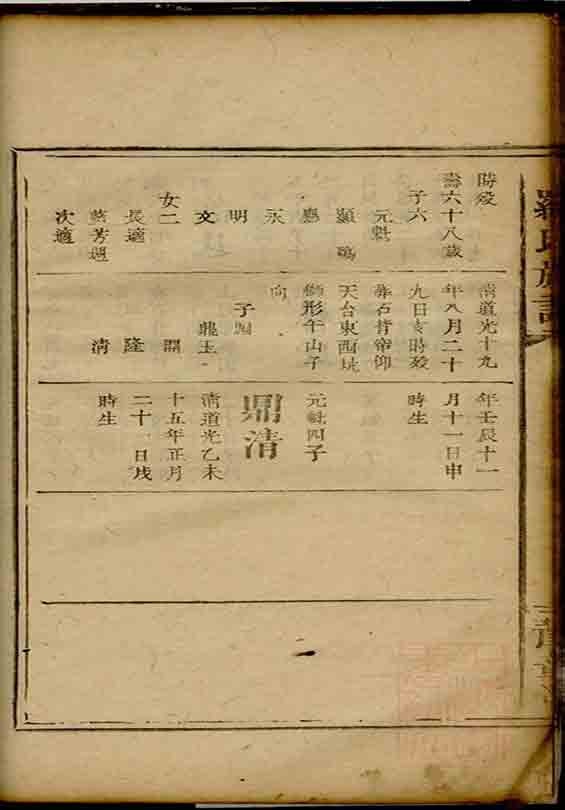 時殁
壽六十八歲
子六
元魁
顯鴻
應
永
明
文
女二
長適
蔡芳週
次適
清道光十九
年八月二十
九日亥時殁
葬石背帝仰
天台東西坑
獅形午山子
向
子四
鼎玉
鼎
隆
清
年壬辰十一
月十一日申
時生
元魁四子
鼎清
清道光乙未
十五年正月
二十一日戌
時生
羅氏族譜